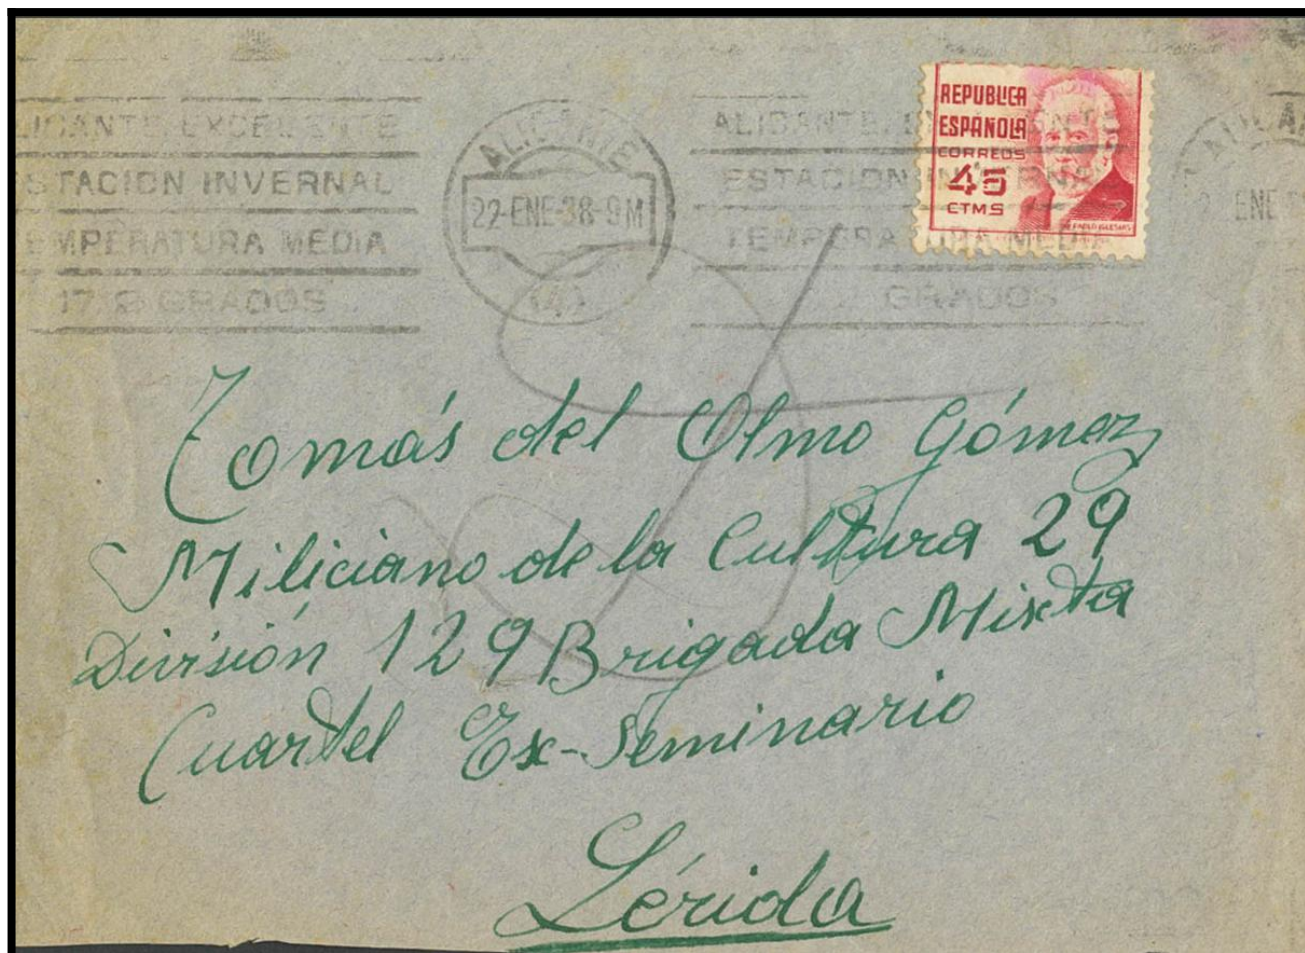 ALICANTE, EXCELENTE
ESTACION INVERNAL
TEMPERATURA MEDIA
GRADOS
ALICANTE
22-ENE-38-9M
(4)
ALICANTE,
ESTACION INVERNAL
TEMPERATURA MEDIA
GRADOS
REPUBLICA
ESPAÑOLA
CORREOS
45
CTMS
PABLO IGLESIAS
ENE
Tomás del Olmo Gómez
Miliciano de la Cultura 29
División 129 Brigada Mixta
Cuartel Ex-Seminario
Lérida